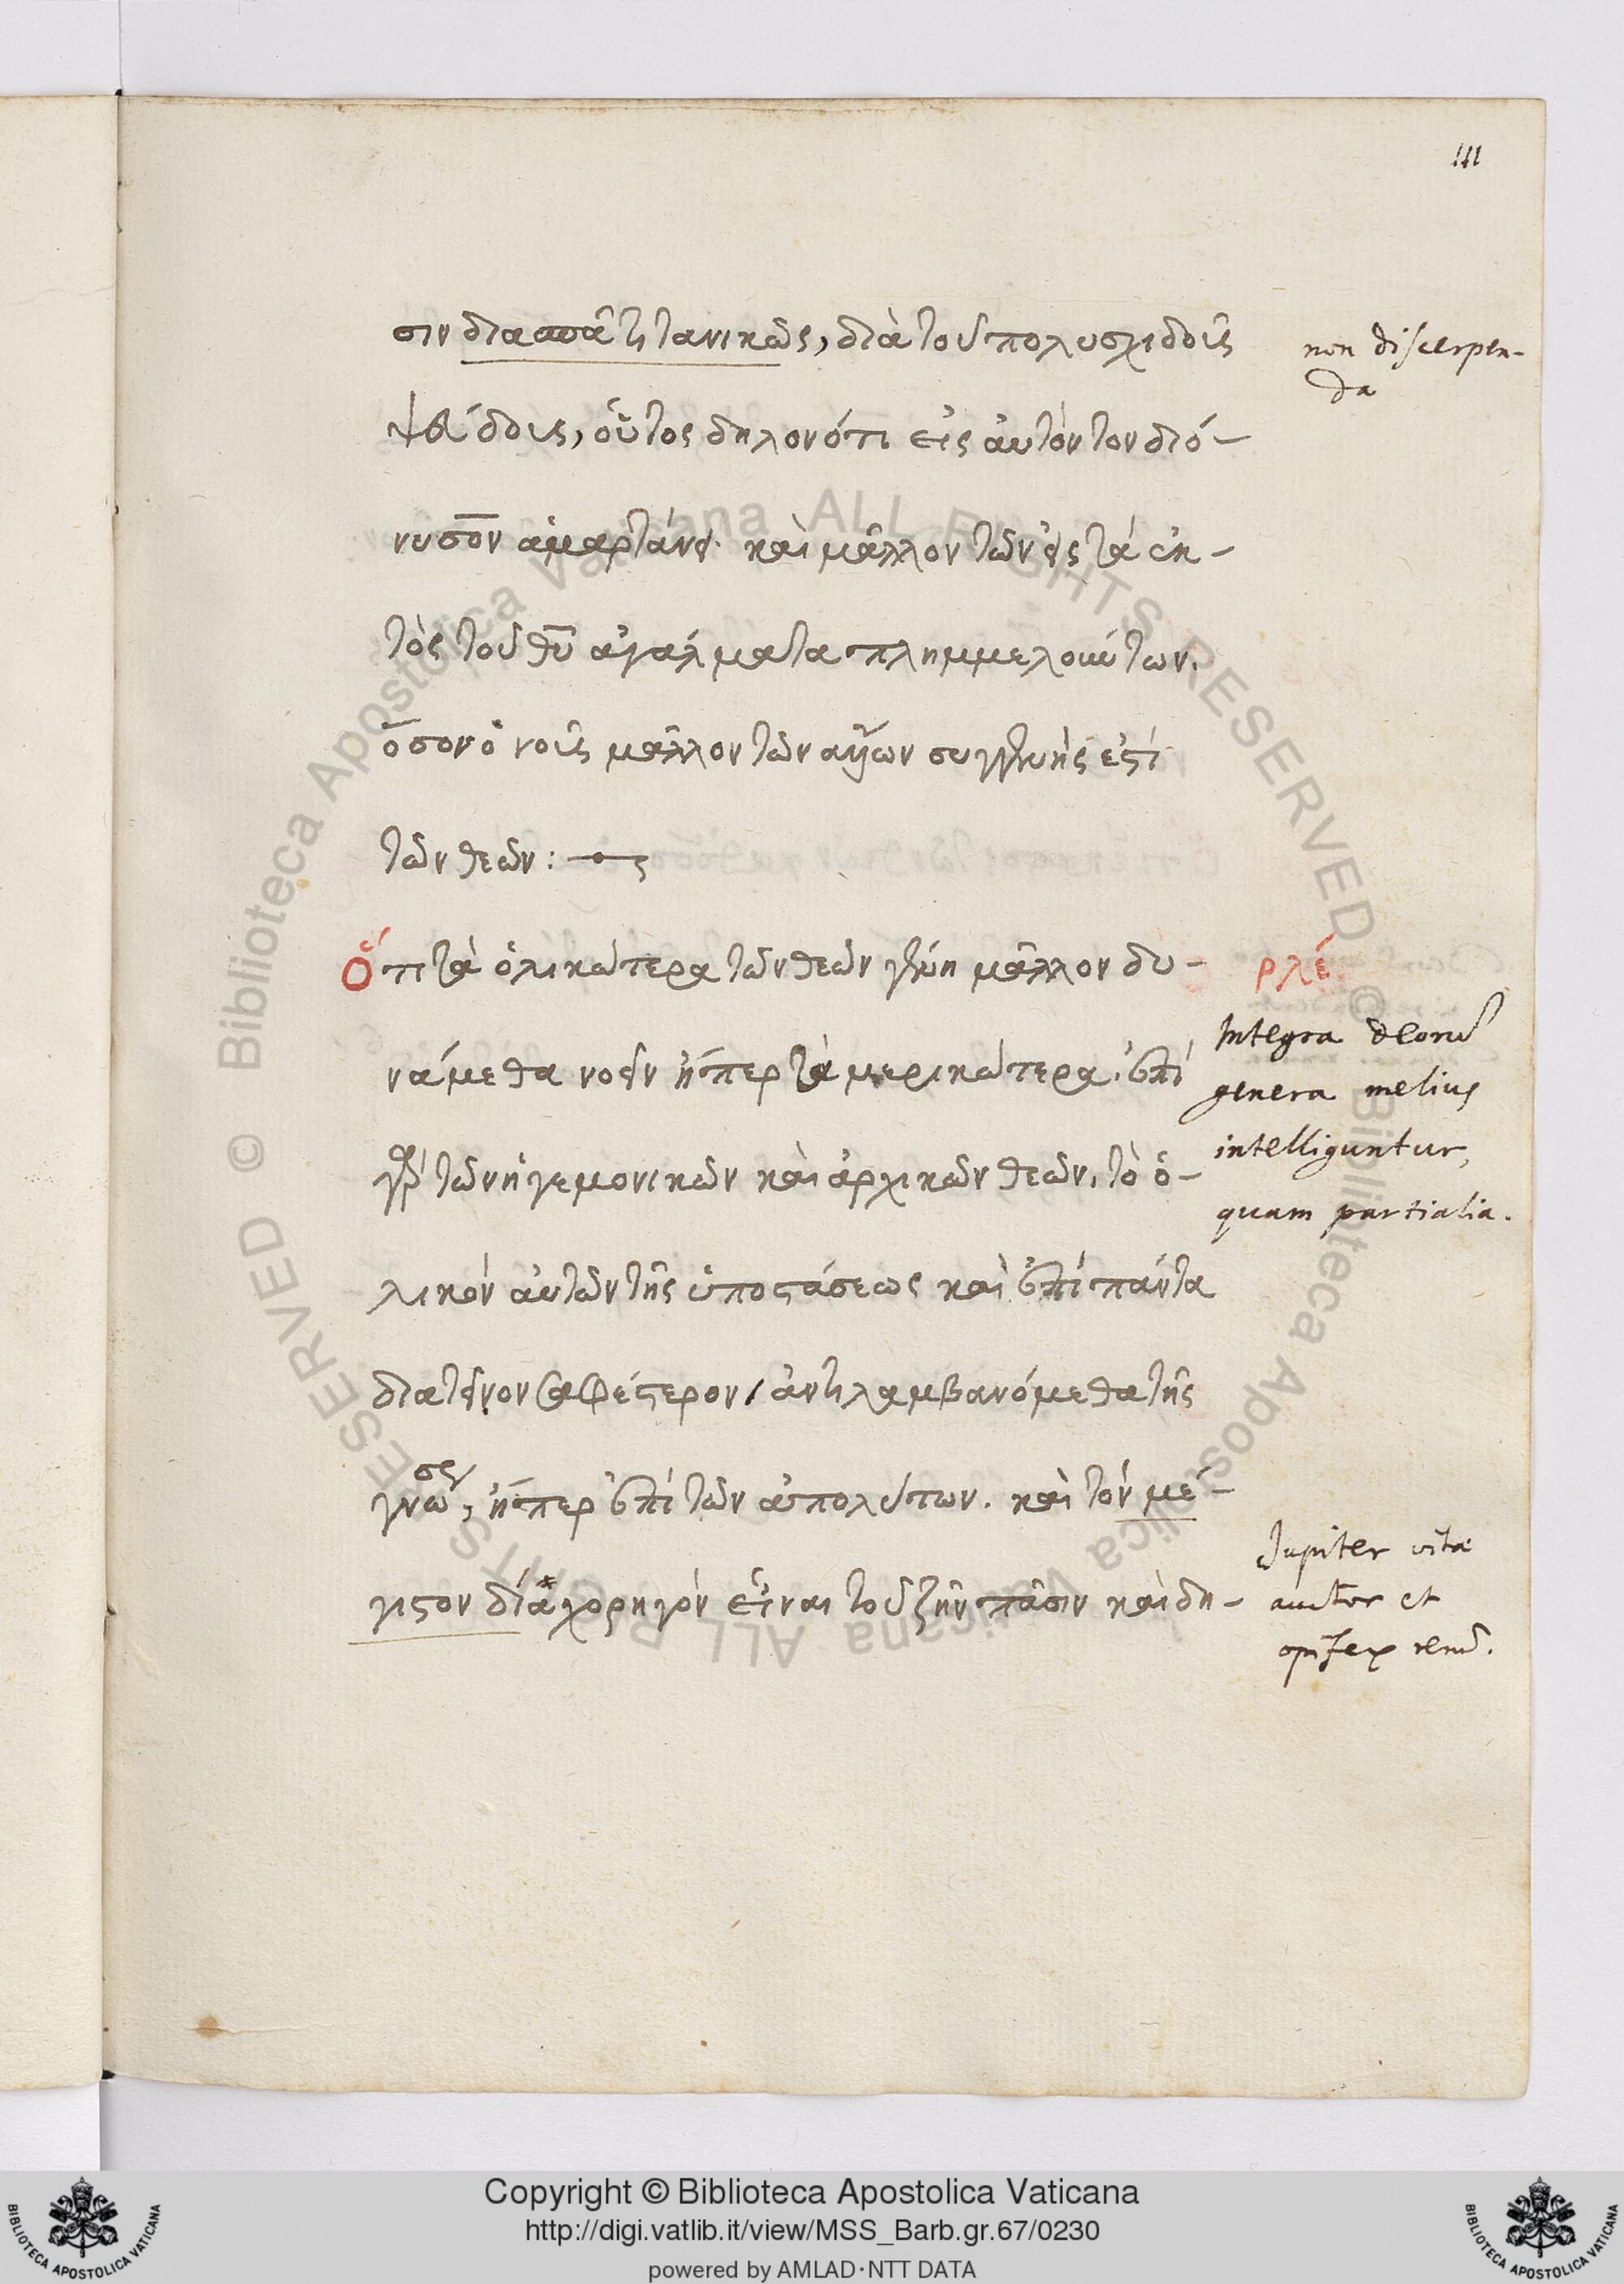 111
σιν διασπᾷ τιτανικῶς, διὰ τοῦ πολυσχιδοῦς
ψεύδους, οὗτος δηλονότι εἰς αὐτὸν τον διό-
νυσον ἁμαρτάνει. καὶ μᾶλλον τῶν εἰς τά ἐκ-
τὸς τοῦ θῦ ἀγάλματα πλημμελούντων.
ὅσον ὁ νοῦς μᾶλλον τῶν ἄλλων συγγενὴς ἐστί
τῶν θεῶν:
Ὅτι τὰ ὁλικώτερα τῶν θεῶν γένη μᾶλλον δυ-
νάμεθα νοεῖν ἤπερ τὰ μερικώτερα. ἐπί
γὰρ τῶν ἡγεμονικῶν καὶ ἀρχικῶν θεῶν, τὸ ὁ-
λικόν αὐτῶν τῆς ὑποστάσεως καὶ ἐπί πάντα
διατεῖνον σαφέστερον, ἀντιλαμβανόμεθα τῆς
γνώσει, ἤπερ ἐπί τῶν ἀπολύτων. καὶ τόν μέ-
γιστον δία χορηγόν εἶναι τοῦ ζῆν πᾶσιν καὶ δη-
non discerpen-
da
ρλέ
Integra deorum
genera melius
intelliguntur,
quam partialia.
Jupiter vitæ
auctor et
opifex rerum.
Copyright © Biblioteca Apostolica Vaticana
http://digi.vatlib.it/view/MSS_Barb.gr.67/0230
powered by AMLAD·NTT DATA
BIBLIOTECA APOSTOLICA VATICANA
BIBLIOTECA APOSTOLICA VATICANA
© Biblioteca Apostolica Vaticana ALL RIGHTS RESERVED
© Biblioteca Apostolica Vaticana ALL RIGHTS RESERVED